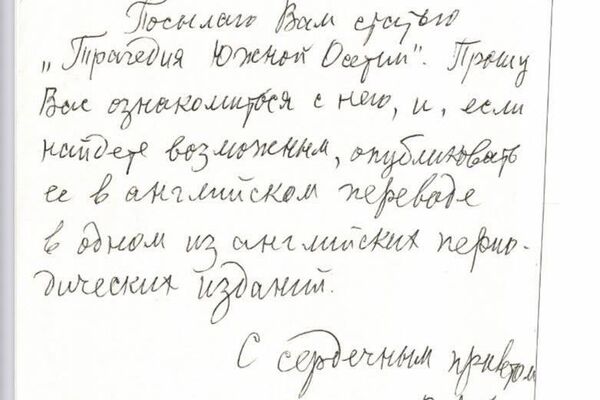 Посылаю Вам статью
„Трагедия Южной Осетии". Прошу
Вас ознакомиться с нею, и, если
найдете возможным, опубликовать
ее в английском переводе
в одном из английских перио-
дических изданий.
С сердечным приветом